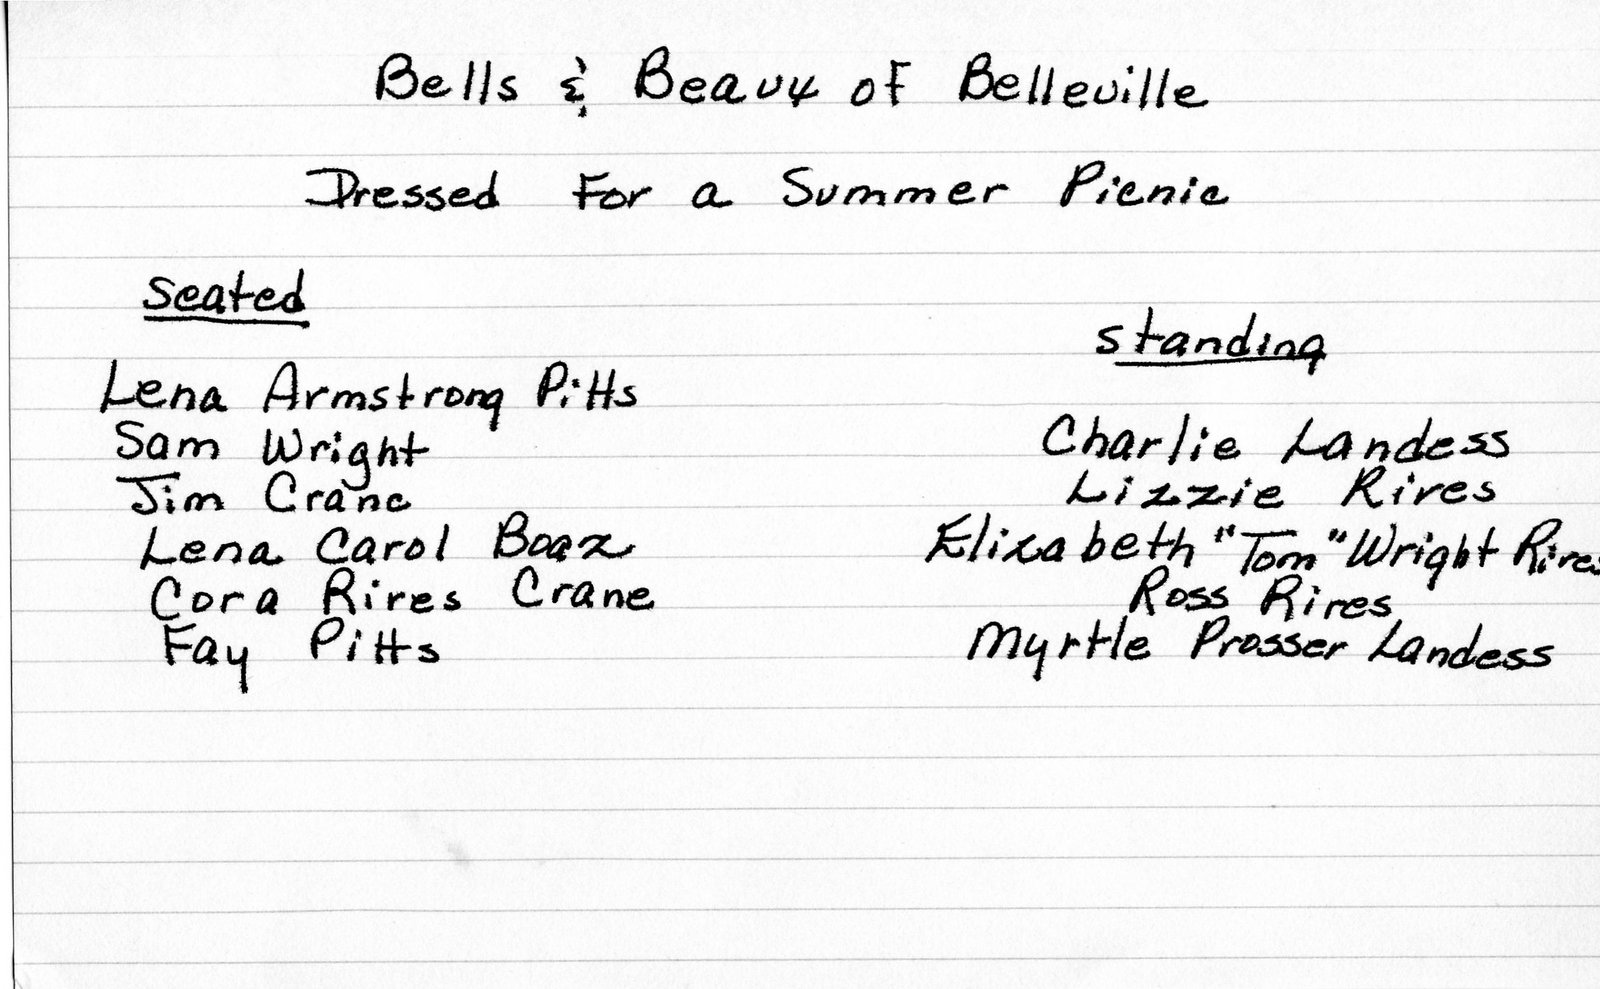 Bells & Beaux of Belleville
Dressed For a Summer Picnic
Seated
Lena Armstrong Pitts
Sam Wright
Jim Crane
Lena Carol Boaz
Cora Rives Crane
Fay Pitts
Standing
Charlie Landess
Lizzie Rives
Elizabeth "Tom" Wright Rives
Ross Rives
Myrtle Prosser Landess